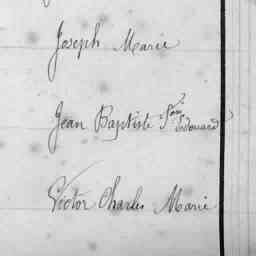 Joseph Marie
Jean Baptiste Edouard
Victor Charles Marie